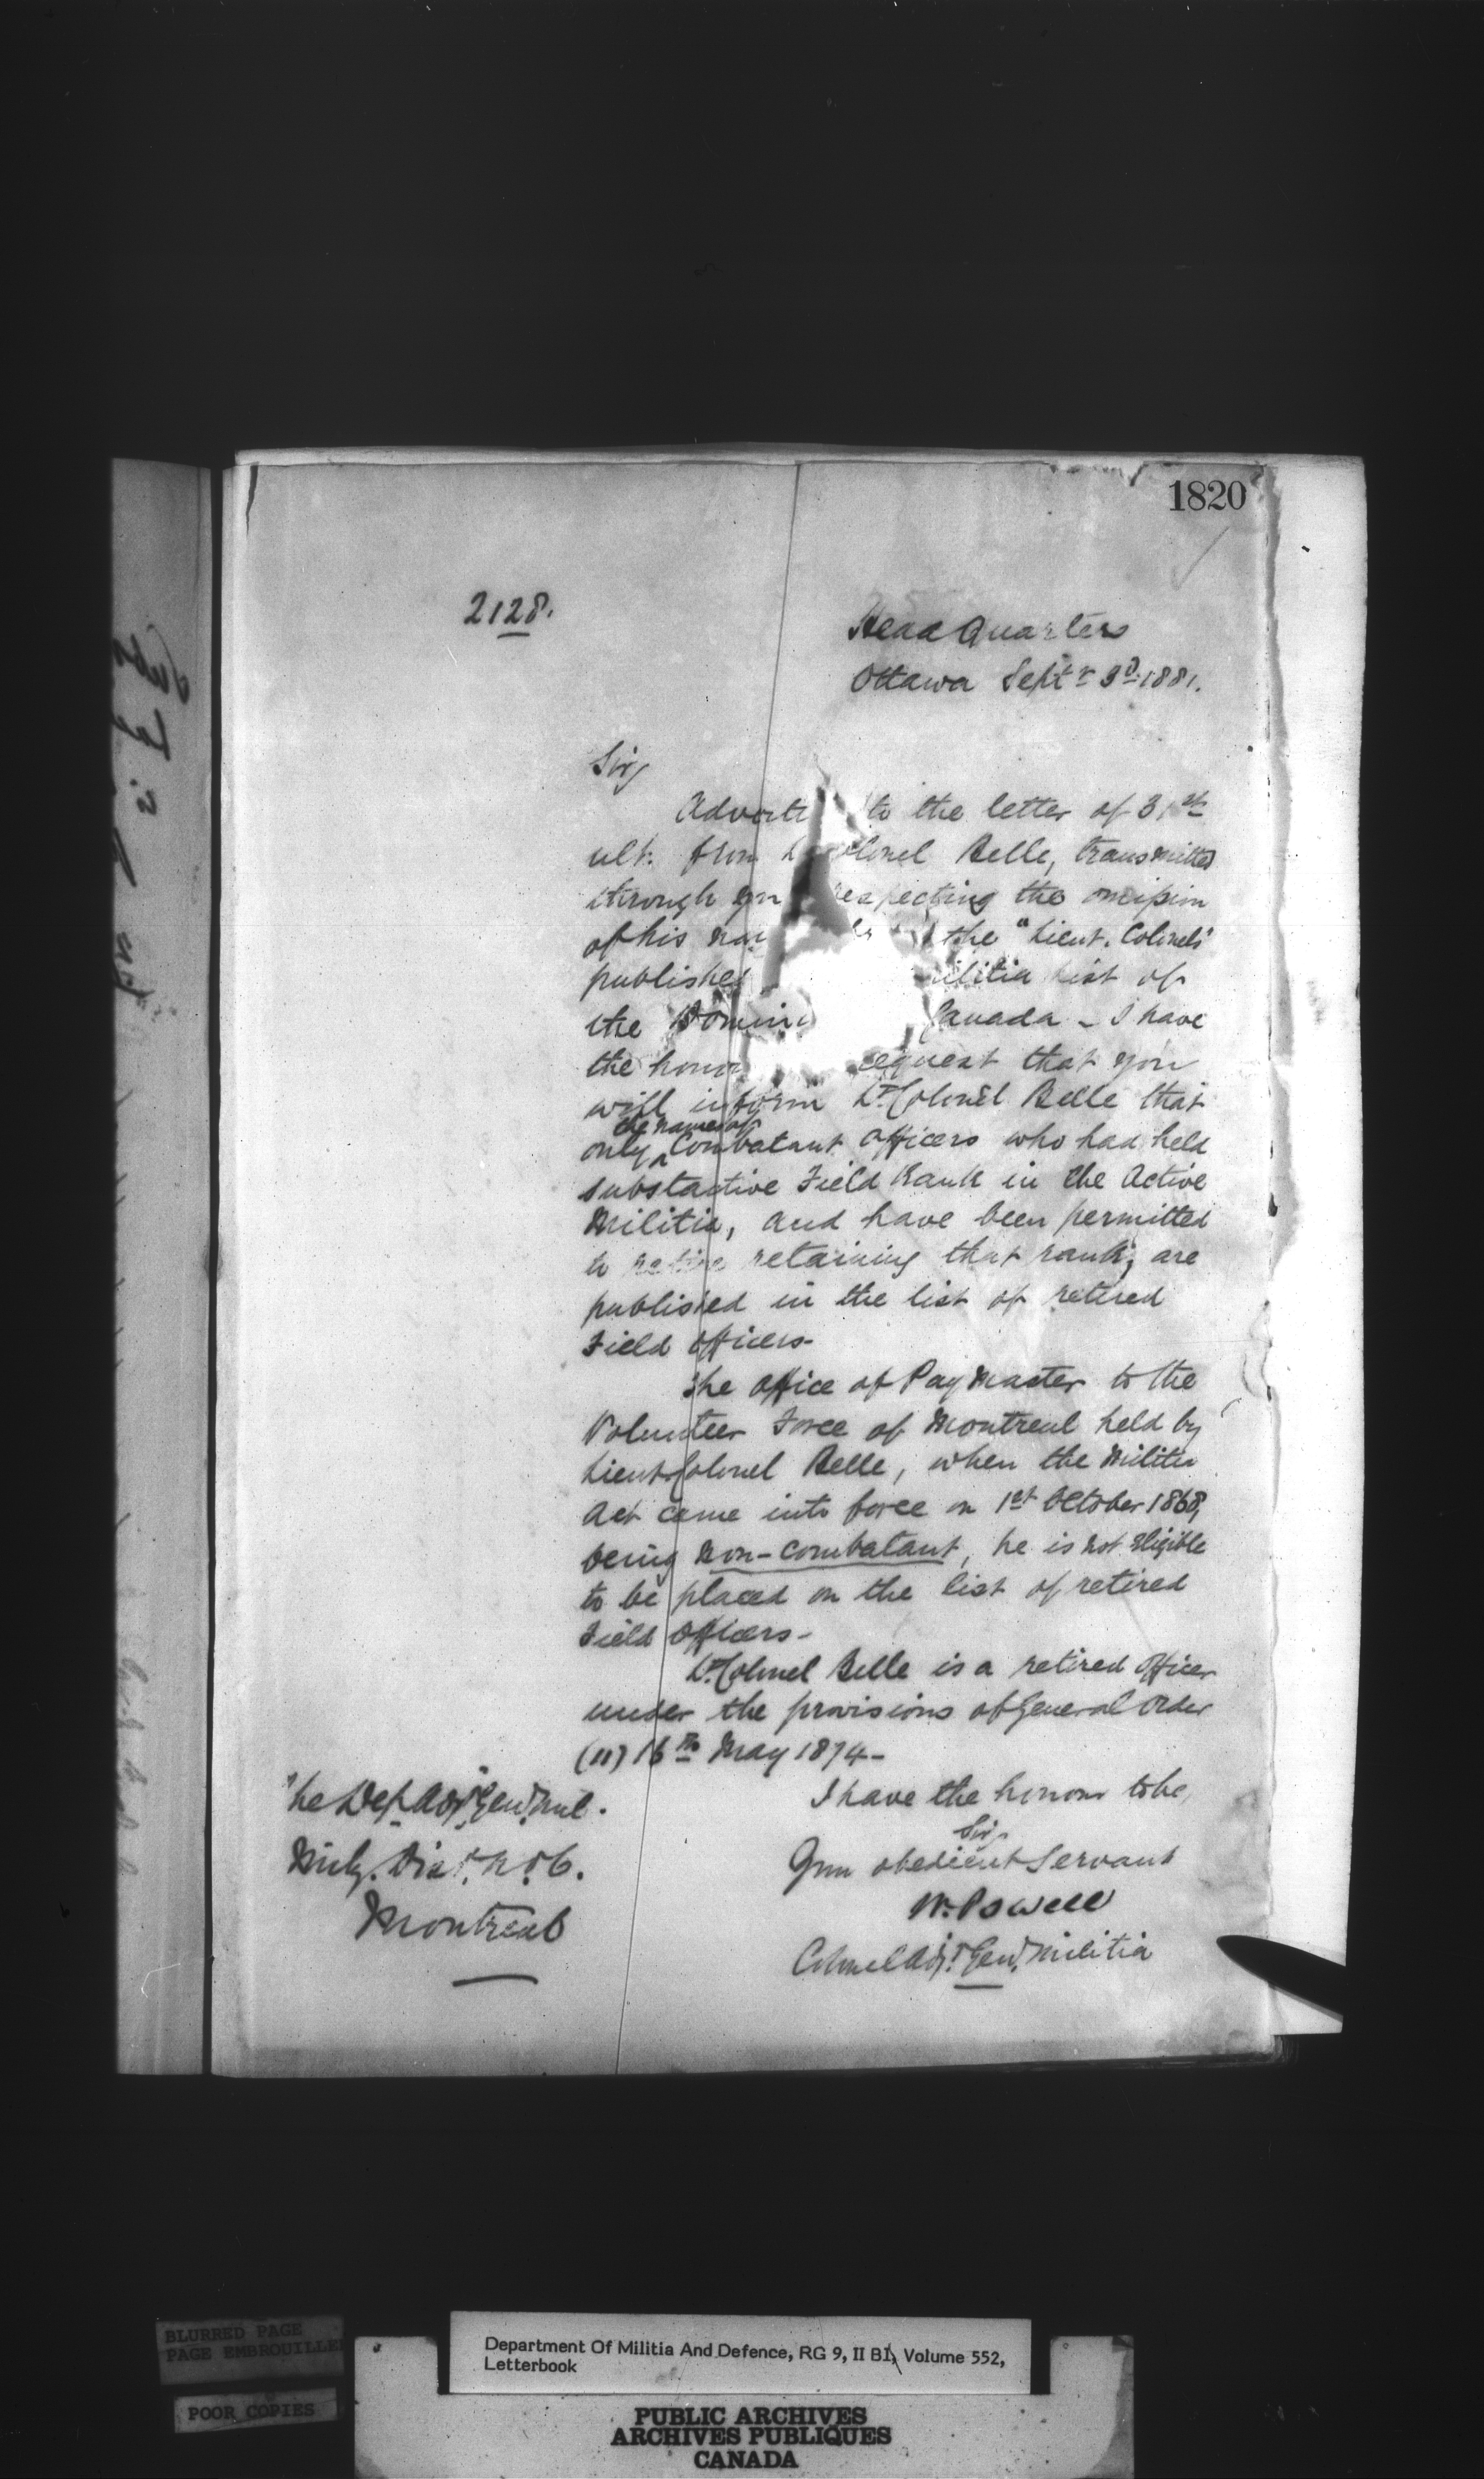 1820
2128.
Head Quarters
Ottawa Septr 3d 1881.
Sir,
to the letter of 31st
ult. from Belle, transmitted
through respecting the omission
of his the "Lieut. Colonels"
List of
the Canada - I have
the honor request that you
will inform Lt. Colonel Belle that
the names of
only ^ Combatant Officers who had held
substantive Field Rank in the Active
Militia, and have been permitted
to retire retaining that rank, are
published in the list of retired
Field Officers-
The Office of Paymaster to the
Volunteer Force of Montreal held by
Lieut. Colonel Belle, when the Militia
Act came into force on 1st October 1868,
being non-combatant, he is not eligible
to be placed on the list of retired
Field Officers-
Lt. Colonel Belle is a retired Officer
under the provisions of General Order
(11) 16th May 1874-
I have the honour to be,
Sir,
Your obedient Servant
W. Powell
Colonel Adjt. Genl. Militia
The Dep. Adjt. Genl. Mil.
Mily. Dist. No. 6.
Montreal
BLURRED PAGE
PAGE EMBROUILLEE
POOR COPIES
Department Of Militia And Defence, RG 9, II B1, Volume 552,
Letterbook
PUBLIC ARCHIVES
ARCHIVES PUBLIQUES
CANADA